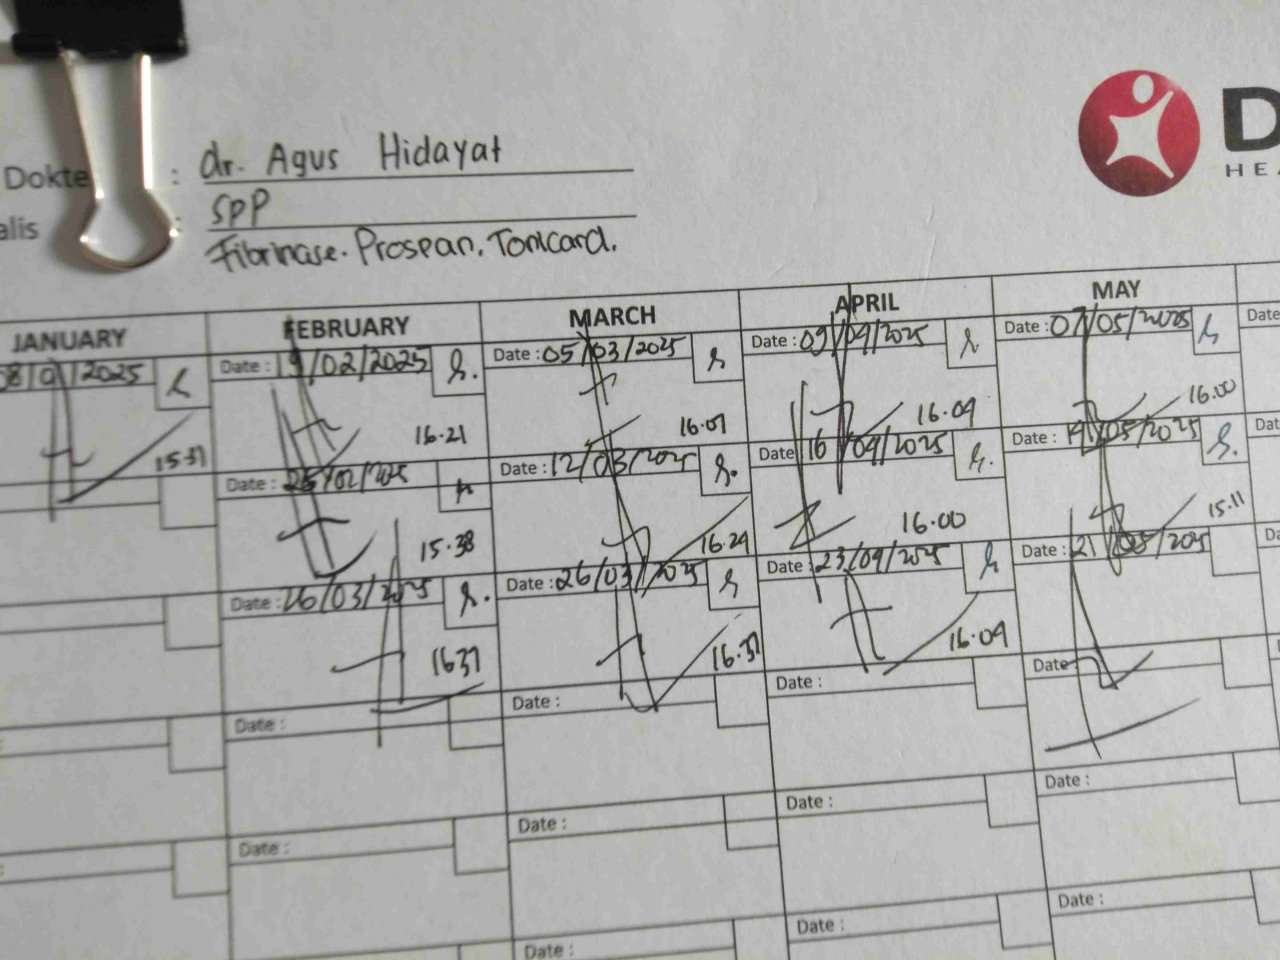 Dokte : dr. Agus Hidayat
alis : SPP
Fibrinase. Prospan. Tonicard.
D
HEA
JANUARY FEBRUARY MARCH APRIL MAY
08/01/2025 Date : 19/02/2025 Date : 05/03/2025 Date : 09/04/2025 Date : 07/05/2025 Date
15.37 16.21 16.07 16.04 16.00
Date : 25/02/2025 Date : 12/03/2025 Date 16/04/2025 Date : 19/05/2025 Dat
15.38 16.24 16.00 15.11
Date : 26/03/2025 Date : 26/03/2025 Date : 23/04/2025 Date : 21/05/2025 D
1637 16.37 16.04
Date : Date : Date : Date
Date : Date : Date : Date :
Date : Date : Date :